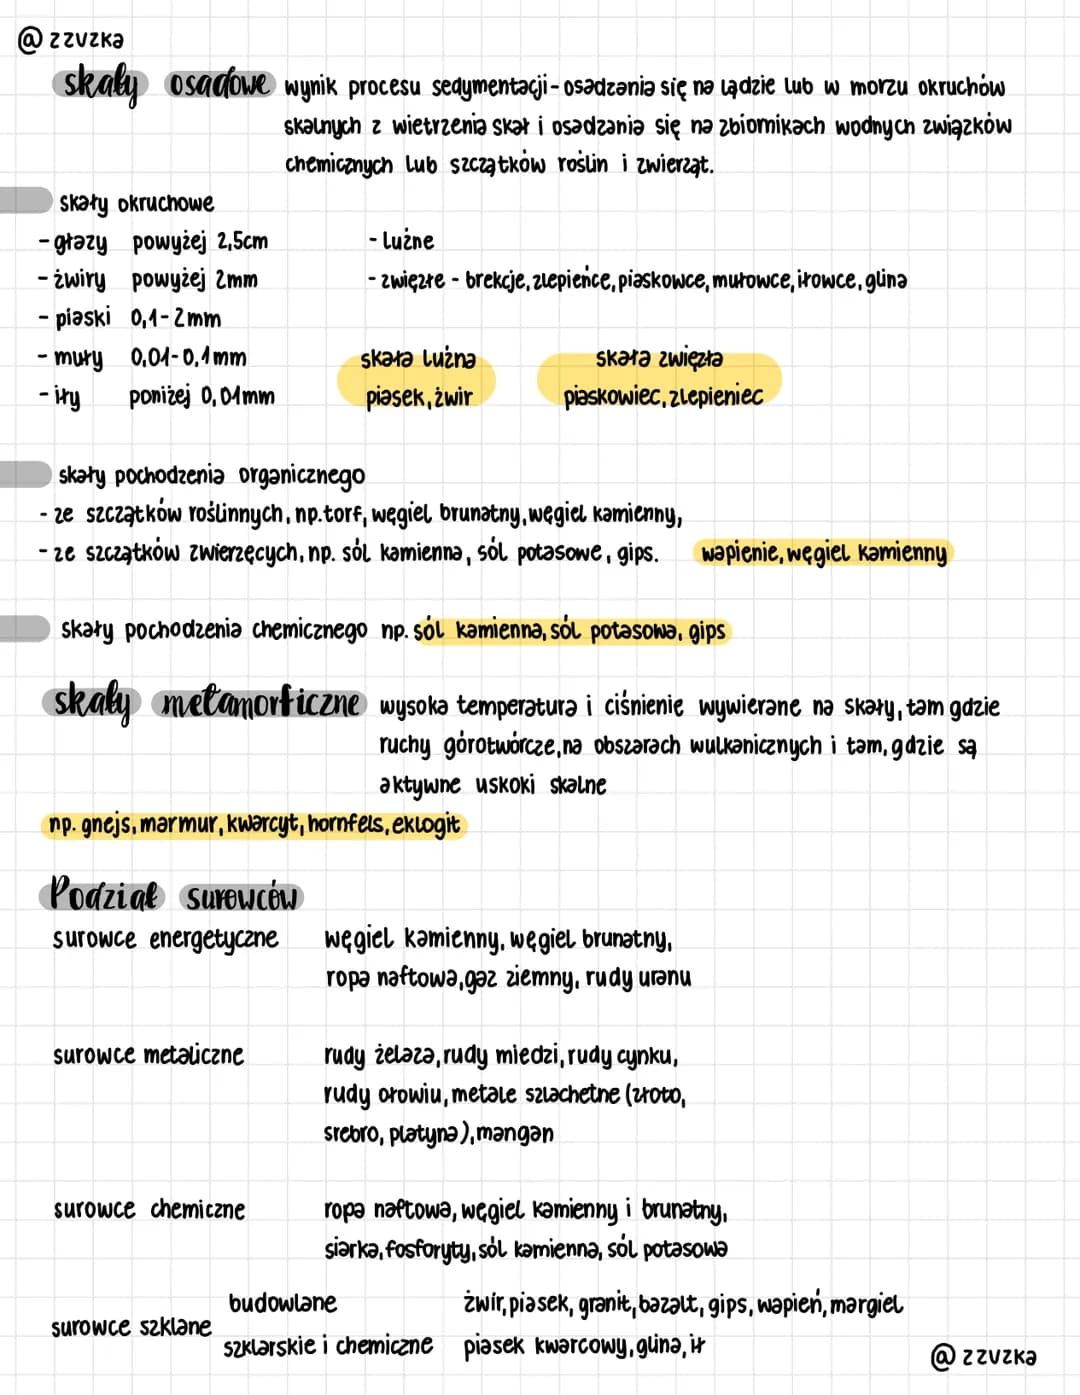 @zzuzka
skały osadowe wynik procesu sedymentacji-osadzania się na lądzie lub w morzu okruchów
skalnych z wietrzenia skał i osadzania się na zbiornikach wodnych związków
chemicznych lub szczątków roślin i zwierząt.
skały okruchowe
- głazy powyżej 2,5cm - luźne
- żwiry powyżej 2mm - zwięzłe - brekcje, zlepieńce, piaskowce, mułowce, iłowce, glina
- piaski 0,1-2mm
- muły 0,01-0,1mm skała luźna skała zwięzła
- iły poniżej 0,01mm piasek, żwir piaskowiec, zlepieniec
skały pochodzenia organicznego
- ze szczątków roślinnych, np.torf, węgiel brunatny, węgiel kamienny,
- ze szczątków zwierzęcych, np. sól kamienna, sól potasowe, gips. wapienie, węgiel kamienny
skały pochodzenia chemicznego np. sól kamienna, sól potasowa, gips
skały metamorficzne wysoka temperatura i ciśnienie wywierane na skały, tam gdzie
ruchy górotwórcze, na obszarach wulkanicznych i tam, gdzie są
aktywne uskoki skalne
np. gnejs, marmur, kwarcyt, hornfels, eklogit
Podział surowców
surowce energetyczne węgiel kamienny, węgiel brunatny,
ropa naftowa, gaz ziemny, rudy uranu
surowce metaliczne rudy żelaza, rudy miedzi, rudy cynku,
rudy ołowiu, metale szlachetne (złoto,
srebro, platyna), mangan
surowce chemiczne ropa naftowa, węgiel kamienny i brunatny,
siarka, fosforyty, sól kamienna, sól potasowa
budowlane żwir, piasek, granit, bazalt, gips, wapień, margiel
surowce szklane
szklarskie i chemiczne piasek kwarcowy, glina, ił
@zzuzka